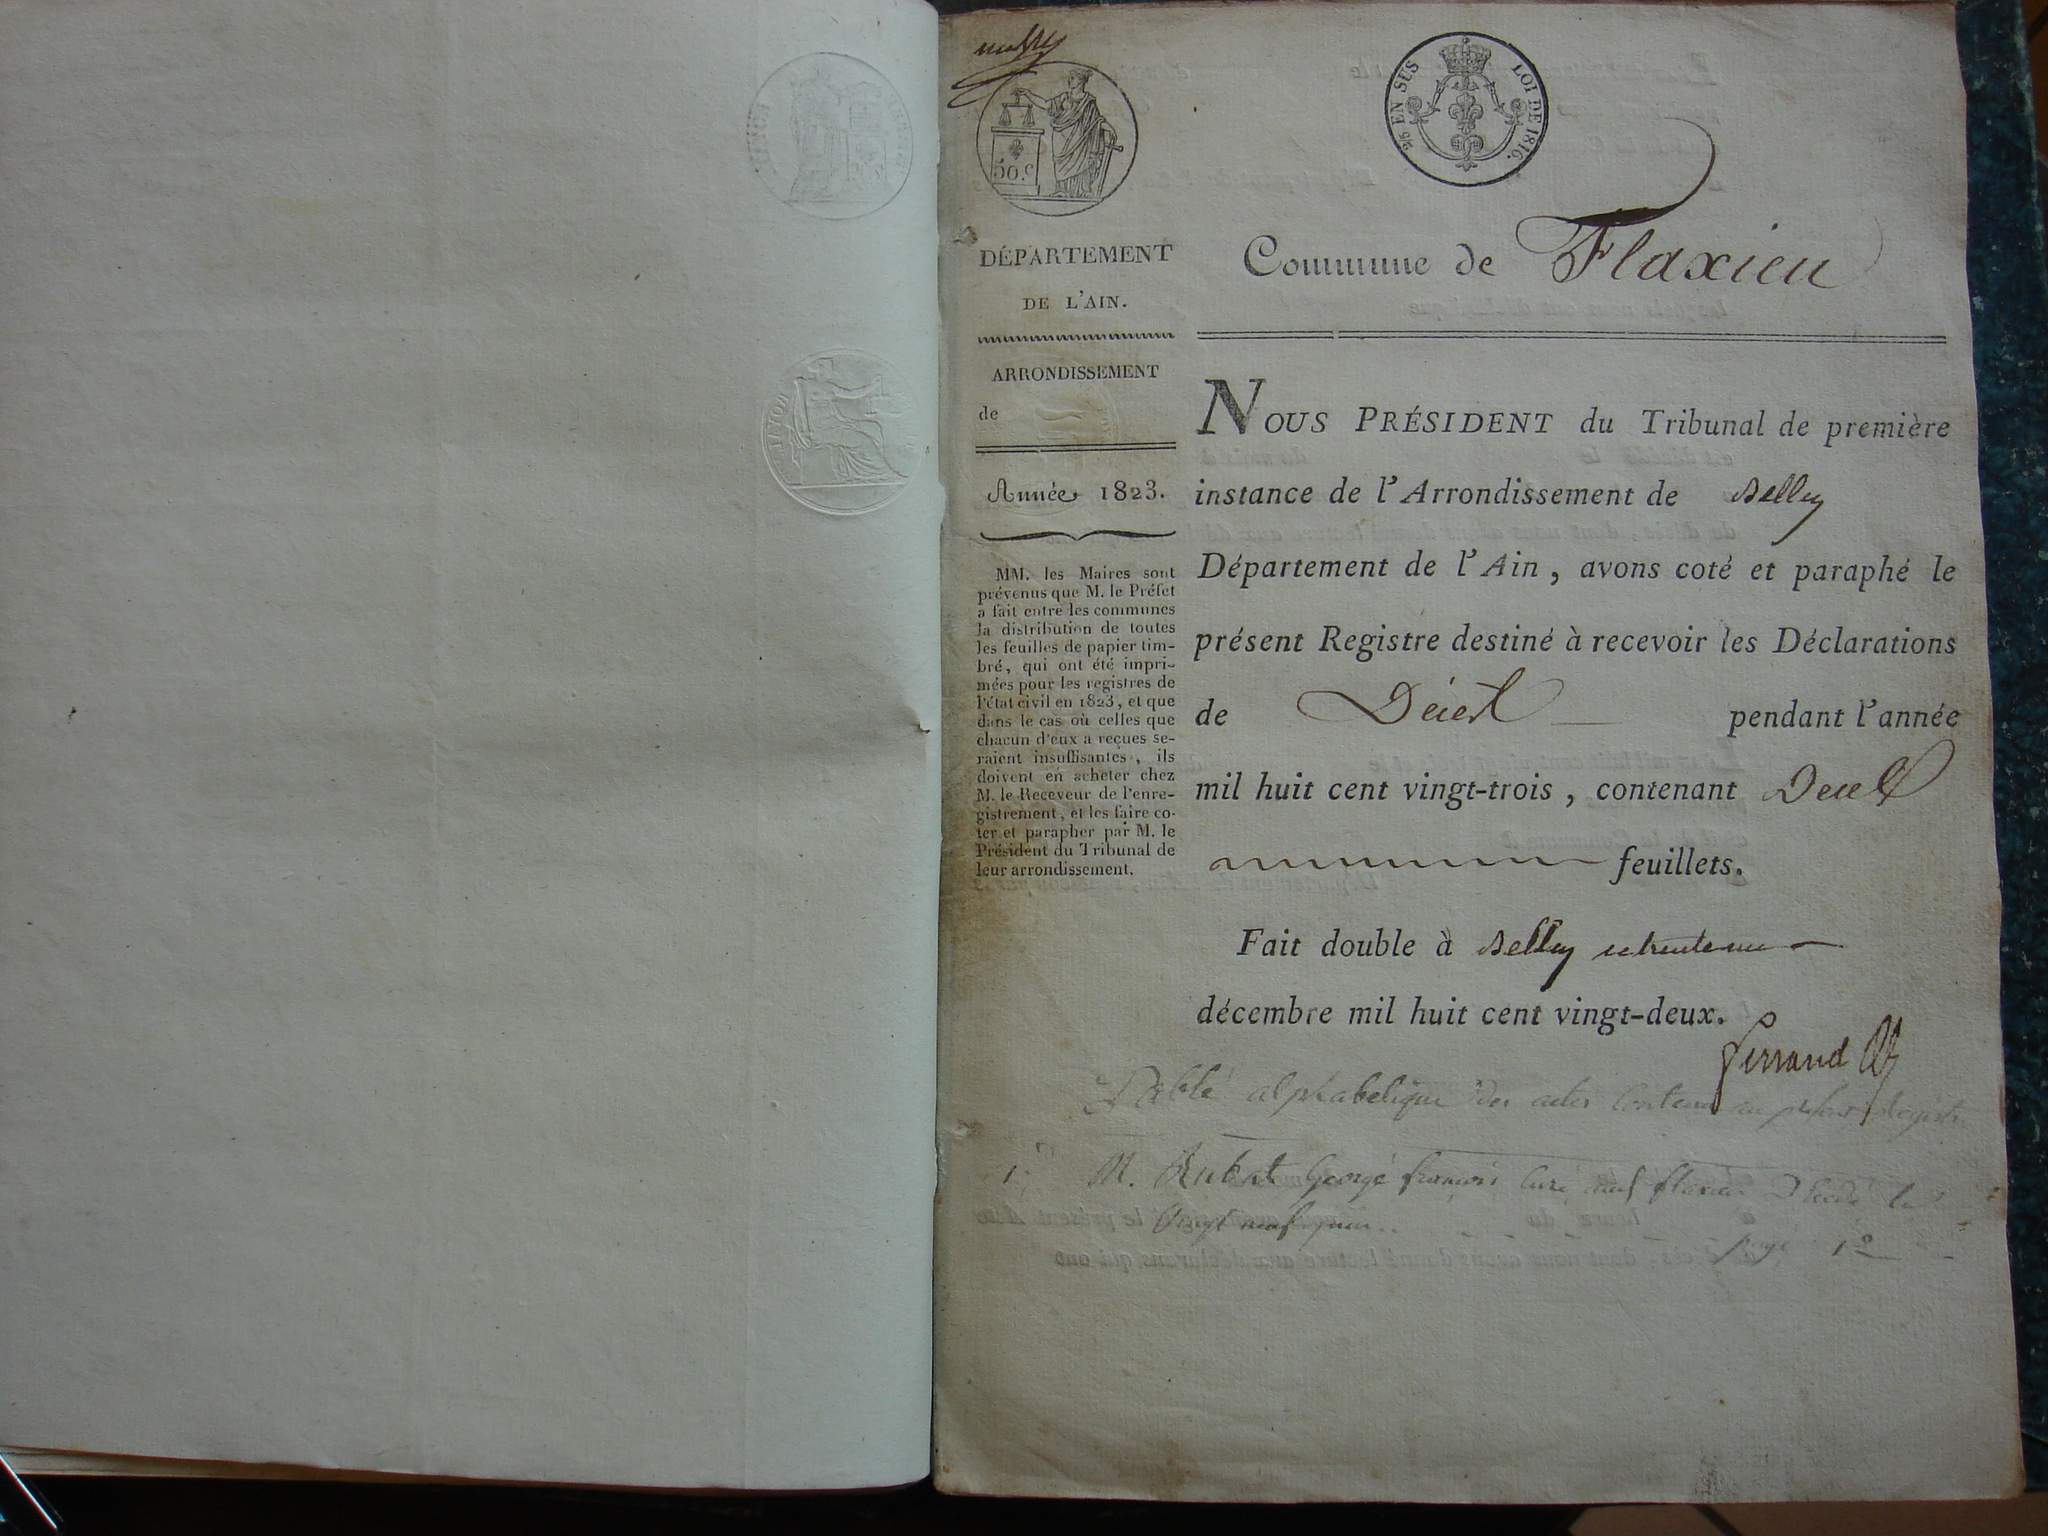 50.c
2/5 EN SUS LOI DE 1816.
DÉPARTEMENT
DE L'AIN.
ARRONDISSEMENT
de
Année 1823.
MM. les Maires sont
prévenus que M. le Préfet
a fait entre les communes
la distribution de toutes
les feuilles de papier tim-
bré, qui ont été impri-
mées pour les registres de
l'état civil en 1823, et que
dans le cas où celles que
chacun d'eux a reçues se-
raient insuffisantes, ils
doivent en acheter chez
M. le Receveur de l'enre-
gistrement, et les faire co-
ter et parapher par M. le
Président du Tribunal de
leur arrondissement.
Commune de Flaxieu
NOUS PRÉSIDENT du Tribunal de première
instance de l'Arrondissement de Belley
Département de l'Ain, avons coté et paraphé le
présent Registre destiné à recevoir les Déclarations
de Décès pendant l'année
mil huit cent vingt-trois, contenant Deux
feuillets.
Fait double à Belley le trente un
décembre mil huit cent vingt-deux.
Ferrand
Table alphabetique des actes contenu au présent Registre
1. M. Rubat George françois curé de flaxieu Décédé le
Vingt neuf juin
page 1